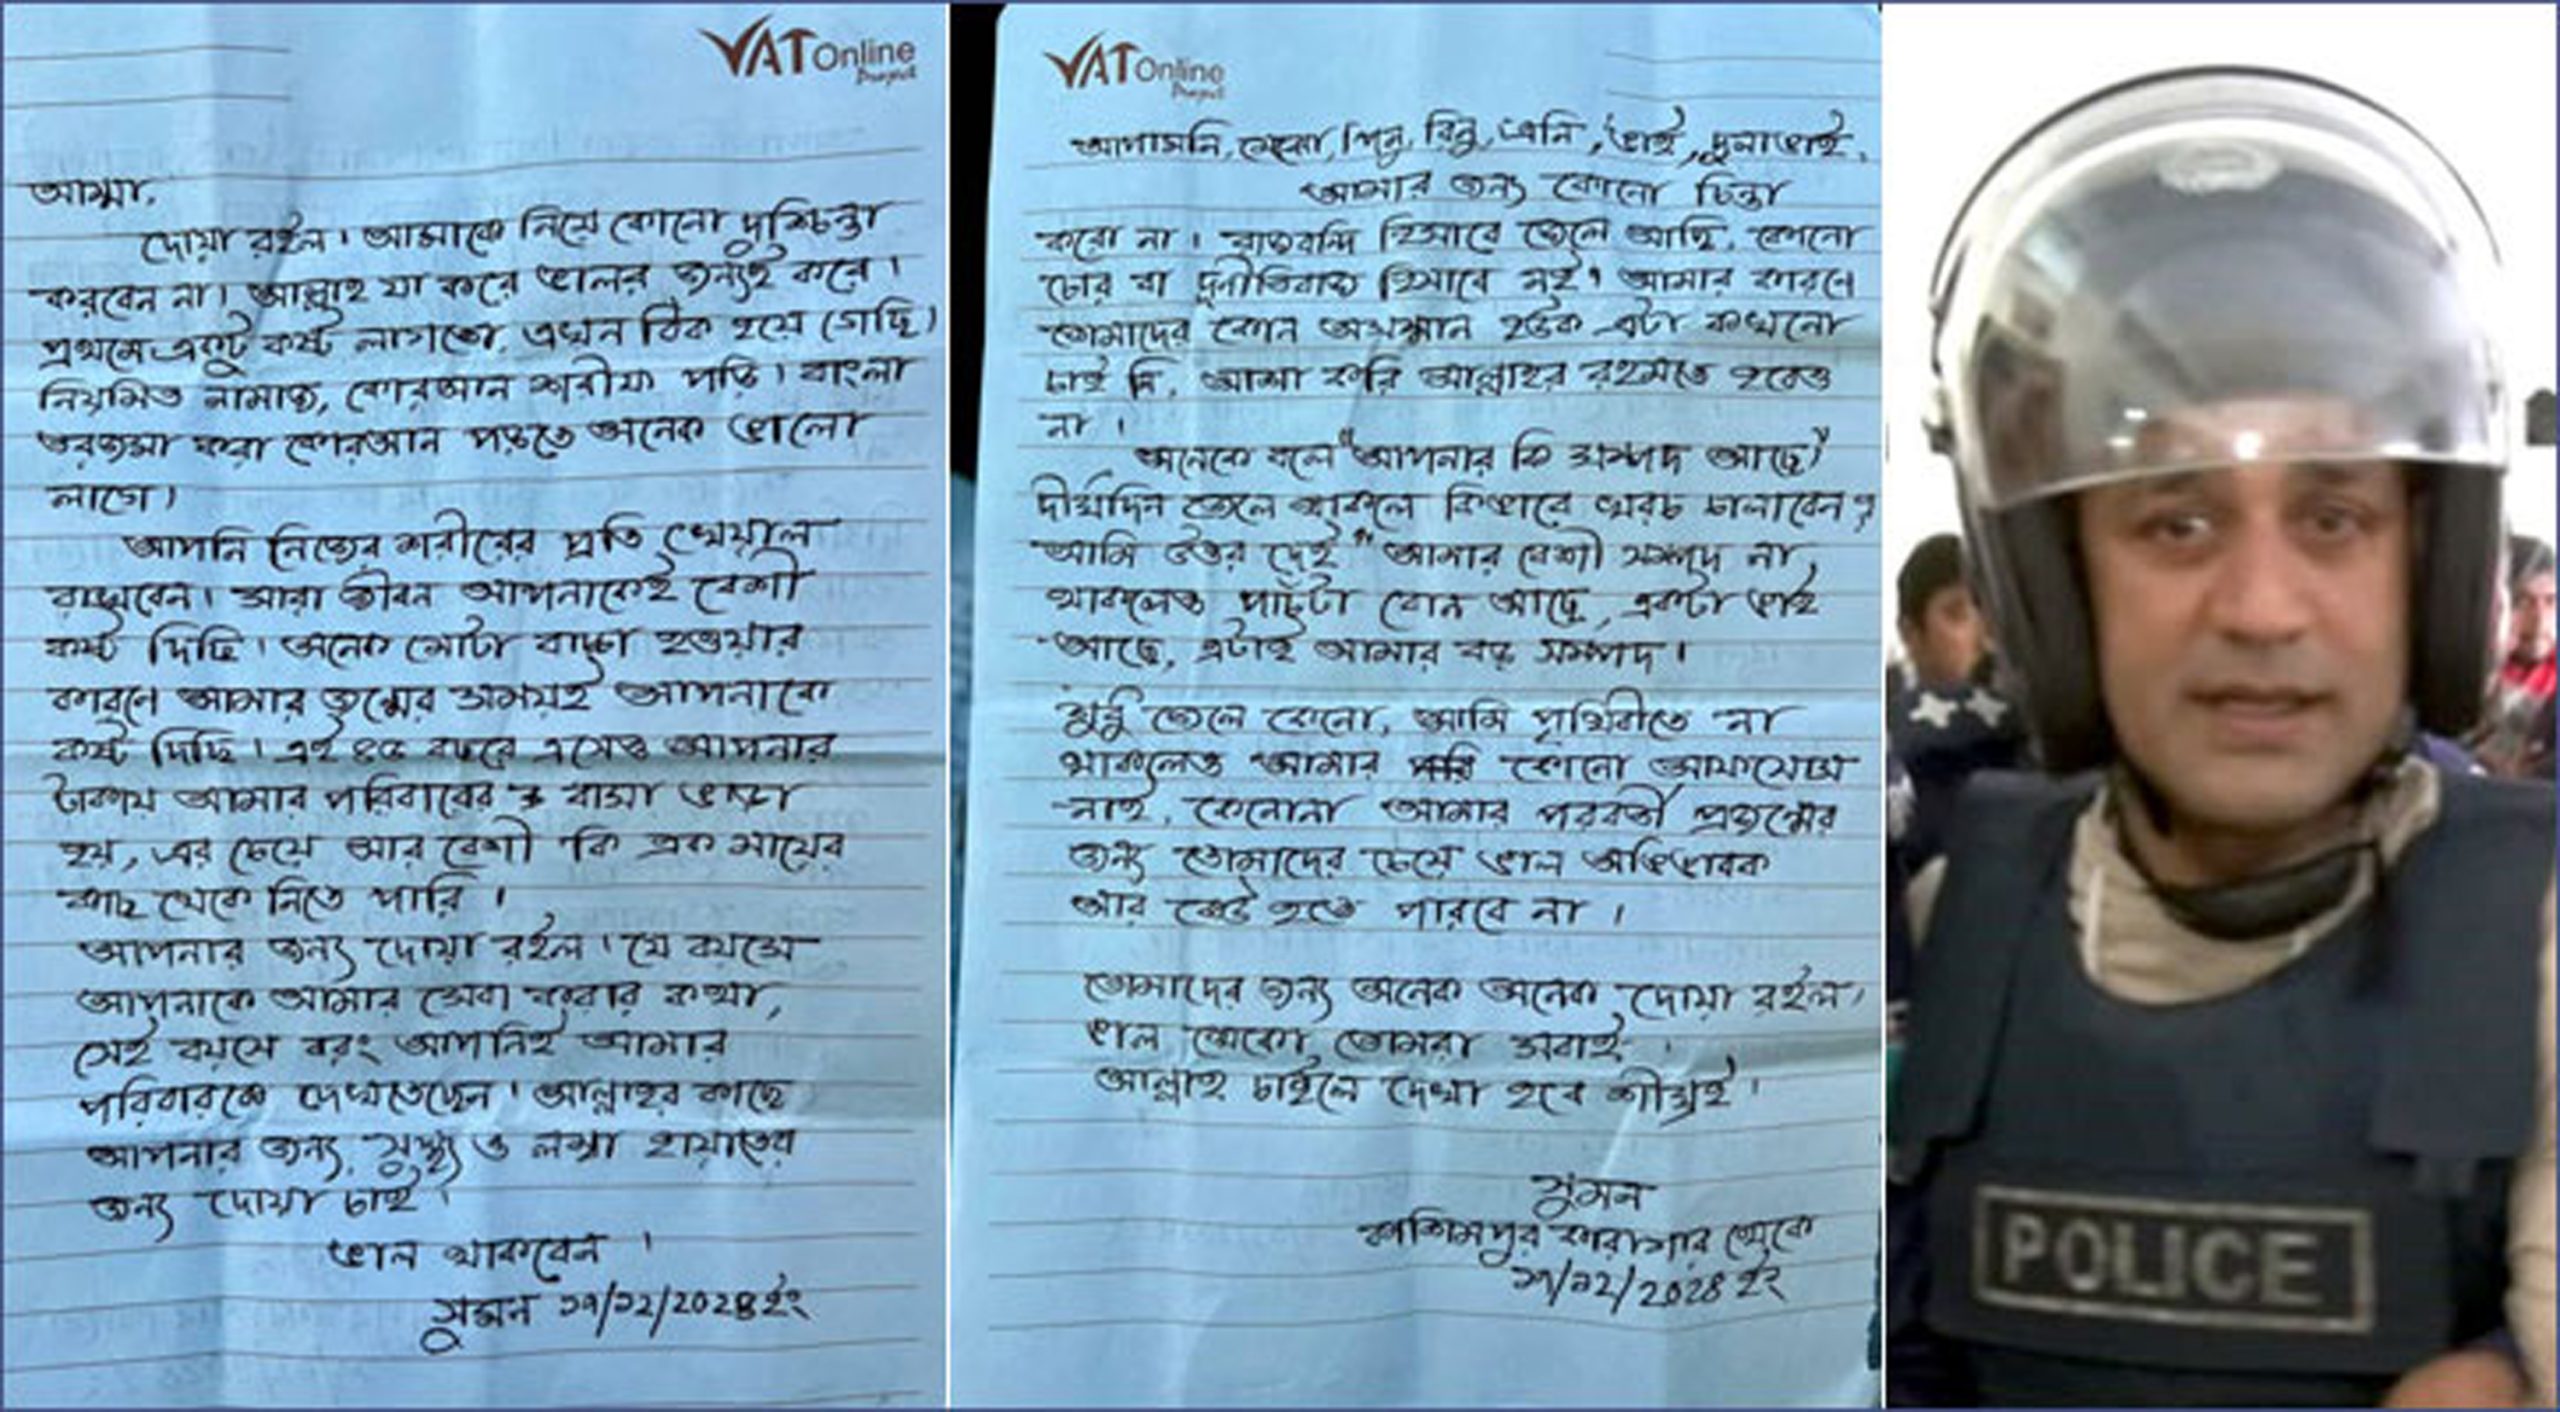 VAT Online
Project
আম্মা,
দোয়া রইল। আমাকে নিয়ে কোনো দুশ্চিন্তা
করবেন না। আল্লাহ যা করে ভালর জন্যই করে।
প্রথমে একটু কষ্ট লাগতো, এখন ঠিক হয়ে গেছি।
নিয়মিত নামাজ, কোরআন শরীফ পড়ি। বাংলা
তরজমা করা কোরআন পড়তে অনেক ভালো
লাগে।
আপনি নিজের শরীরের প্রতি খেয়াল
রাখবেন। সারা জীবন আপনাকেই বেশী
কষ্ট দিছি। অনেক মোটা বাচ্চা হওয়ার
কারণে আমার জন্মের সময়ই আপনাকে
কষ্ট দিছি। এই ৪৫ বছরে এসেও আপনার
টাকায় আমার পরিবারের বাসা ভাড়া
হয়, এর চেয়ে আর বেশী কি এক মায়ের
কাছ থেকে নিতে পারি।
আপনার জন্য দোয়া রইল। যে বয়সে
আপনাকে আমার সেবা করার কথা,
সেই বয়সে বরং আপনিই আমার
পরিবারকে দেখতেছেন। আল্লাহর কাছে
আপনার জন্য, সুস্থ্য ও লম্বা হায়াতের
জন্য দোয়া চাই।
ভাল থাকবেন।
সুমন ১৭/১২/২০২৪ইং
VAT Online
Project
আপামনি, মেঝো, শিনু, বিনু, এনি, ভাই, দুলাভাই,
আমার জন্য কোনো চিন্তা
করো না। রাজবন্দি হিসাবে জেলে আছি, কোনো
চোর বা দুর্নীতিবাজ হিসাবে নই। আমার কারণে
তোমাদের কোন অসম্মান হউক এটা কখনো
চাই নি, আশা করি আল্লাহর রহমতে হবেও
না।
অনেকে বলে "আপনার কি সম্পদ আছে"
দীর্ঘদিন জেলে থাকলে কিভাবে খরচ চালাবেন?
আমি উত্তর দেই "আমার বেশী সম্পদ না
থাকলেও পাঁচটা বোন আছে, একটা ভাই
আছে, এটাই আমার বড় সম্পদ।
শুধু জেলে কেনো, আমি পৃথিবীতে না
থাকলেও আমার কোনো আফসোস
নাই, কেনোনা আমার পরবর্তী প্রজন্মের
জন্য তোমাদের চেয়ে ভাল অভিভাবক
আর কেউ হতে পারবে না।
তোমাদের জন্য অনেক অনেক দোয়া রইল।
ভাল থেকো তোমরা সবাই।
আল্লাহ চাইলে দেখা হবে শীঘ্রই।
সুমন
কাশিমপুর কারাগার থেকে
১৭/১২/২০২৪ ইং
POLICE